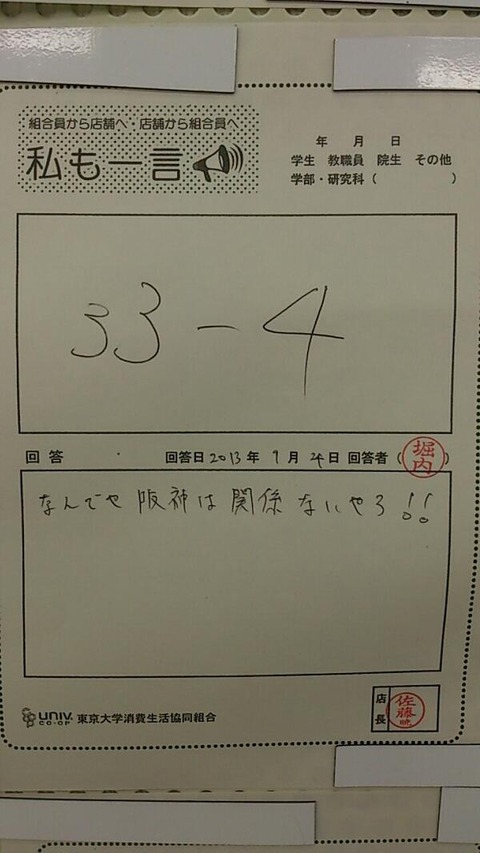 組合員から店舗へ・店舗から組合員へ
私も一言
年 月 日
学生 教職員 院生 その他
学部・研究科( )
33-4
回答 回答日2013年9月24日 回答者(堀内)
なんでや阪神は関係ないやろ!!
UNIV. CO-OP 東京大学消費生活協同組合
店長 佐藤